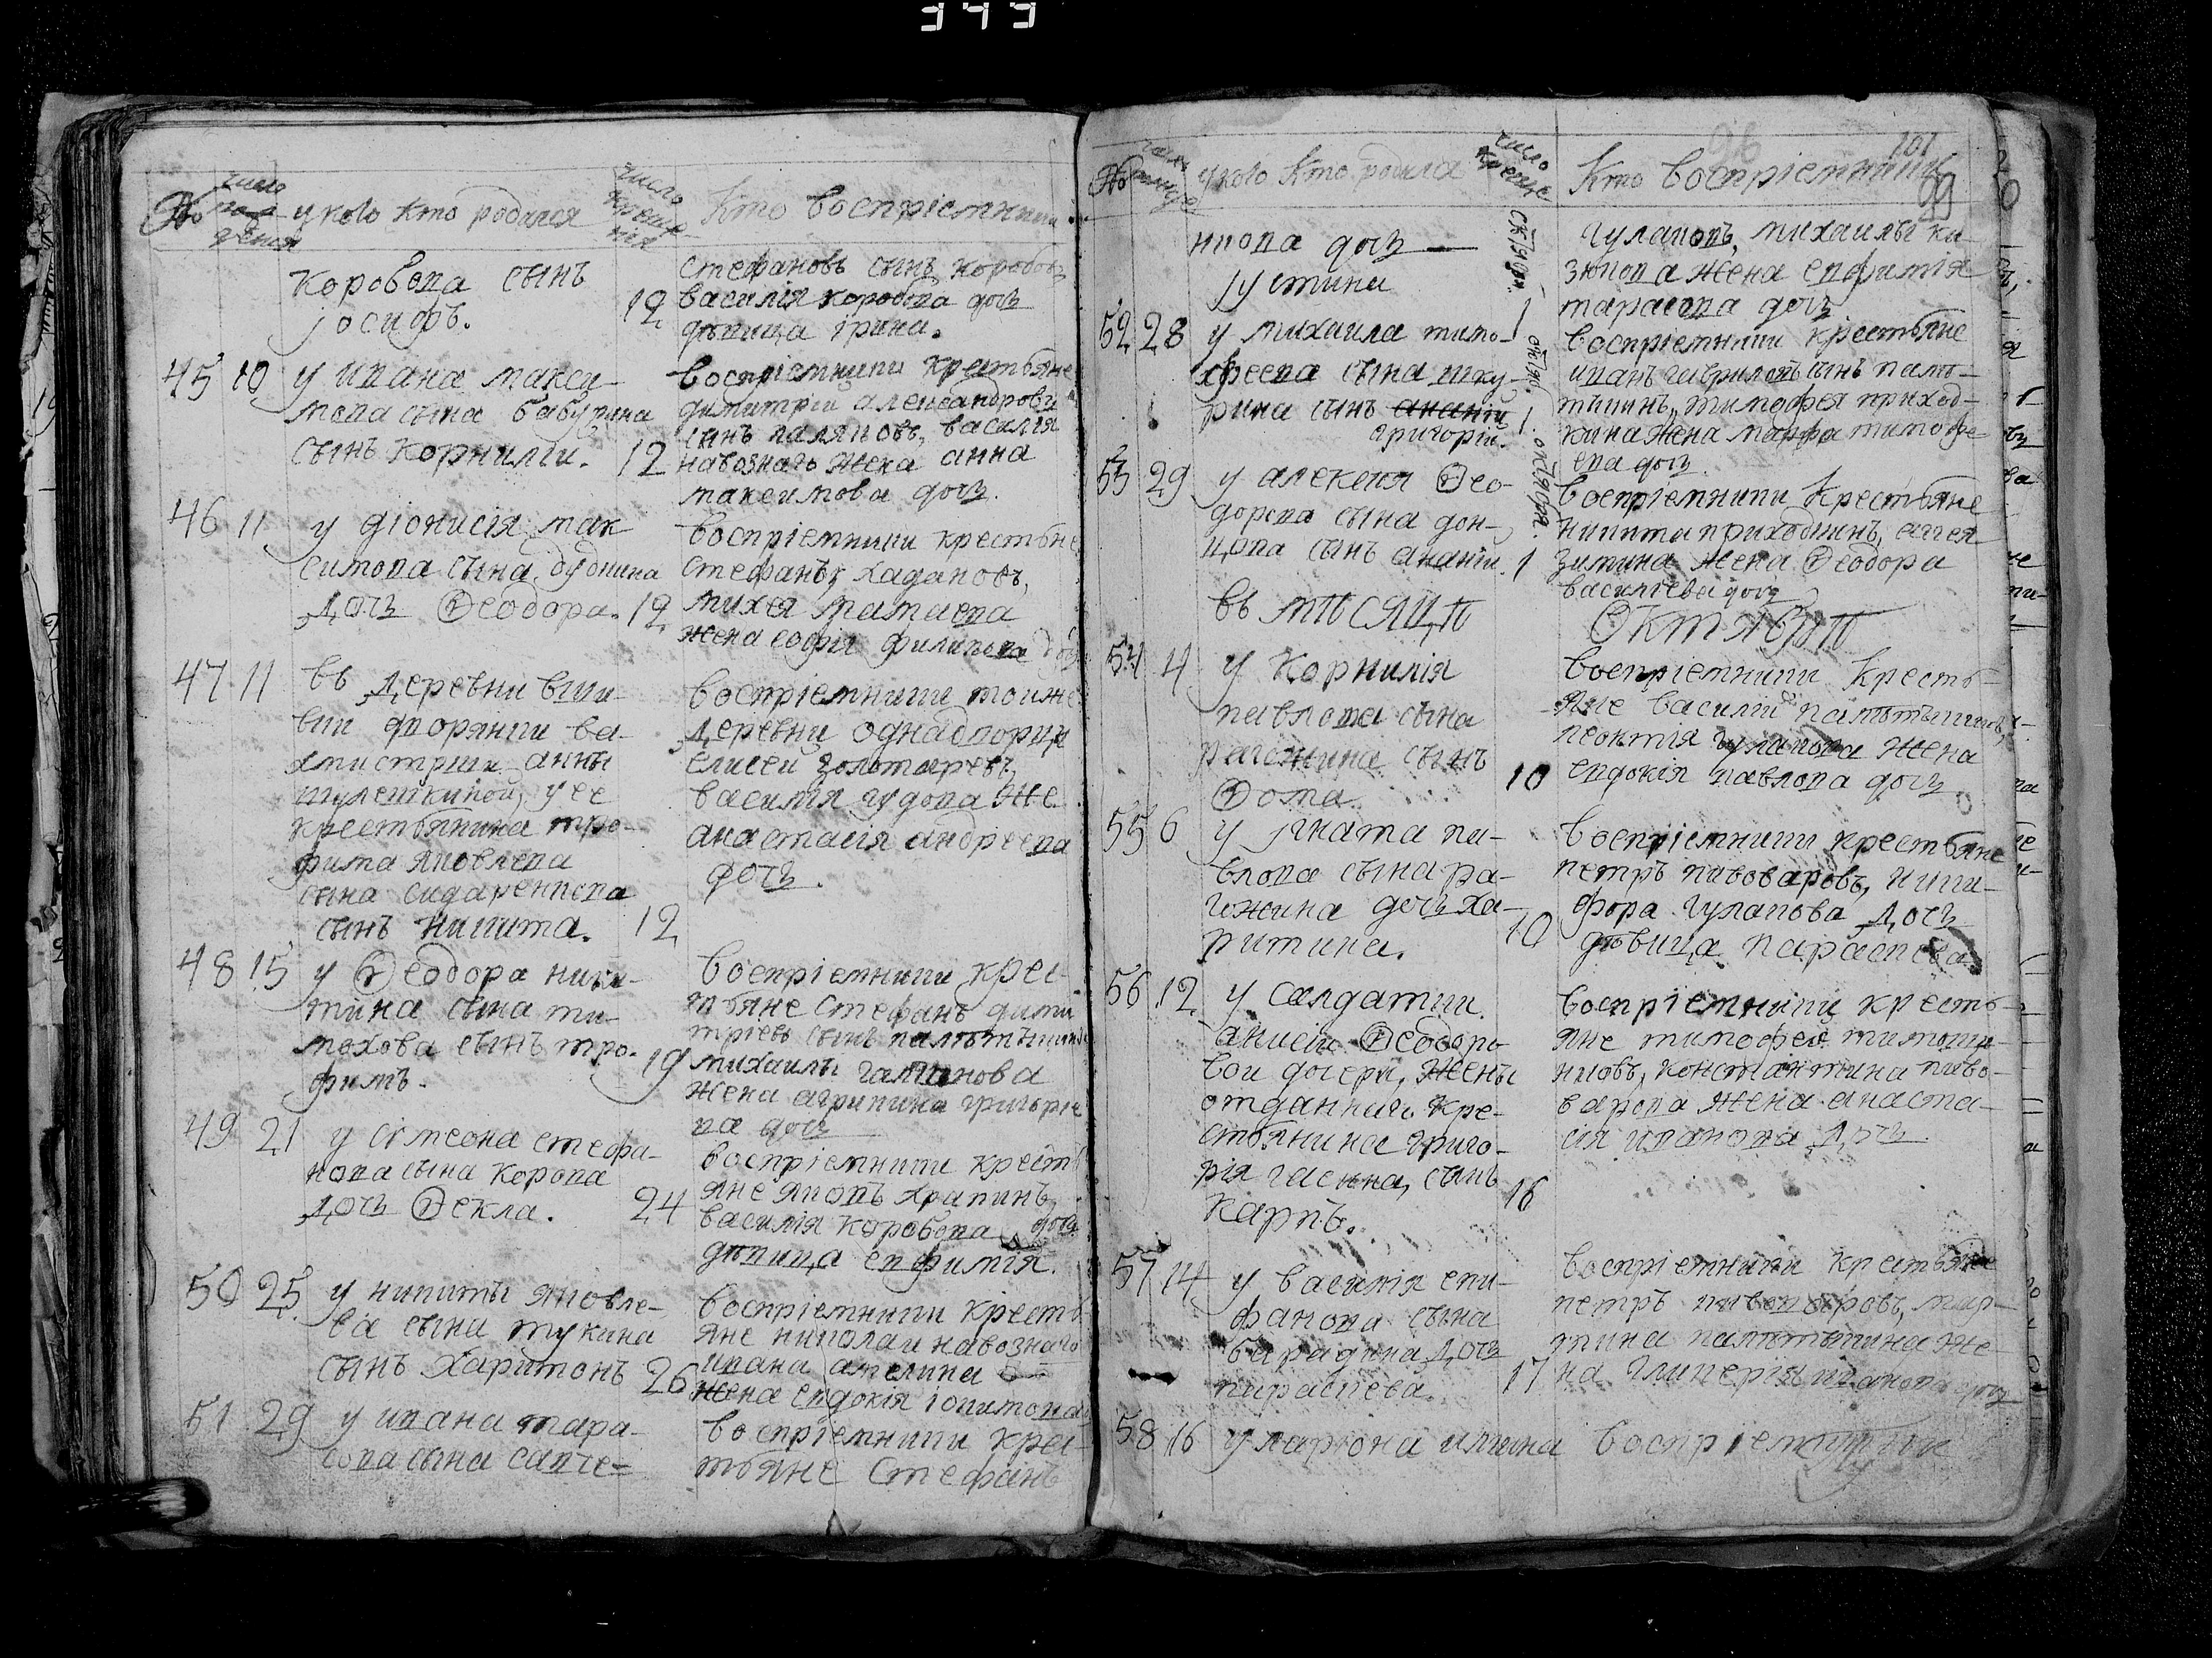 343
№ число рождения у кого кто родился число крещения кто воспріемники
коробова сынъ
іосифъ.
стефановъ сынъ коробовъ
12 василія коробова дочь
дѣвица ірина.
45 10 у ивана макси-
мова сына бабурина
сынъ корнилій. 12
воспріемники крестьяне
димитрій александровъ
сынъ василія
навознаго жена анна
максимова дочь.
46 11 у діонисія мак
симова сына дудника
дочь Ѳеодора. 12
воспріемники крестьяне
стефанъ хадановъ,
михея мамаева
жена софія филипова дочь
47 11 въ деревни
дворянки ва-
хмистрши анны
шулешкиной, у ее
крестьянина тро-
фима яковлева
сына сидаренкова
сынъ никита. 12
воспріемники тоиже
деревни однадворцы
елисей золотаревъ,
василія гудова же
анастасія андреева
дочь.
48 15 у Ѳеодора ники-
тина сына ти-
мохова сынъ тро-
фимъ. 19
воспріемники крес-
тьяне стефанъ дими
тріевъ сынъ палѣтыкинъ
михаилы
жена агрипина григорье
ва дочь
49 21 у сімеона стефа-
нова сына корова
дочь Ѳекла. 24
воспріемники кресть
яне яковъ храпинъ,
василія коробова дочь
дѣвица евфимія.
50 25 у никиты яковле-
ва сына тукина
сынъ харитонъ 26
воспріемники кресть
яне николай навознаго
ивана амелина
жена евдокія іокимова
51 29 у ивана тара-
сова сына савче=
воспріемники крес-
тьяне стефанъ
96 101
99
№ у кого кто родился число креще кто воспріемники
нкова дочь —
іустина
октября
гулаковъ, михаилы ка-
зюкова жена евфимія
тарасова дочь
52 28 у михаила тимо-
фѣева сына шку-
рина сынъ ананій
григорій. 1 октября
воспріемники крестьяне
иванъ гавриловъ сынъ палѣ-
тыкинъ, тимофея приход-
кина жена марфа тимофе
ева дочь
53 29 у алексея Ѳео-
дорова сына дон-
цова сынъ ананій. 1 октября
воспріемники крестьяне
никита приходкинъ, аггея
зимина жена Ѳеодора
василіева дочь
въ мѣсяцѣ октябрѣ
54 4 у корнилія
павлова сына
рагожина сынъ
Ѳома. 10
воспріемники кресть-
яне василій палѣтыкинъ,
леонтія гулакова жена
евдокія павлова дочь
55 6 у ігната па-
влова сына ра-
гожина дочь ха-
ритина. 10
воспріемники крестьяне
петръ пивоваровъ, ники-
фора гулакова дочь
дѣвица параскева
56 12 у салдатки
Ѳеодоро
вой дочери, жены
отданнаго кре-
стьянина григо-
рія гасина, сынъ
карпъ. 16
воспріемники кресть-
яне тимофей
константина пиво-
варова жена анаста-
сія иванова дочь.
57 14 у василія епи-
фанова сына
барадина дочь
параскева. 17
воспріемники крестьяне
петръ пивоваровъ, мар-
тина палѣтыкина же
на гликерія иванова дочь
58 16 у ларіона илина воспріемники